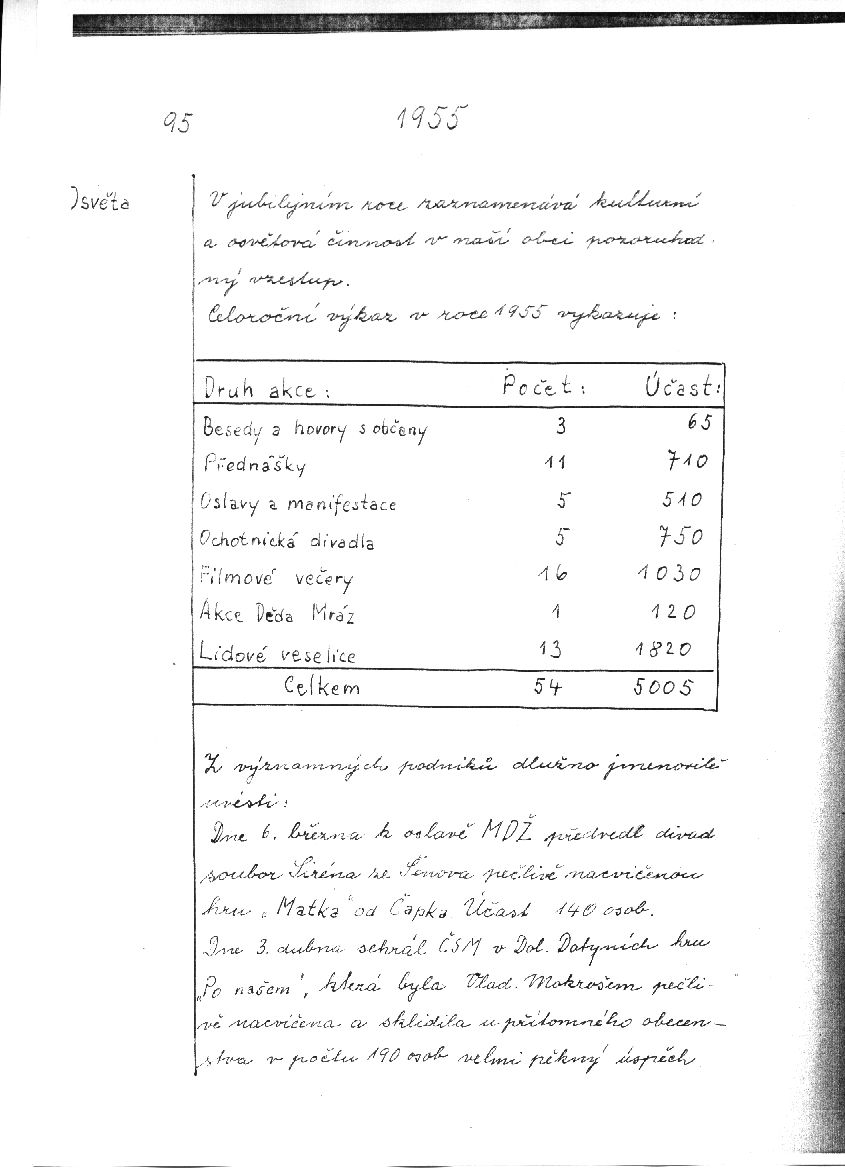 95 1955
Osvěta
V jubilejním roce zaznamenává kulturní
a osvětová činnost v naší obci pozoruhod-
ný vzestup.
Celoroční výkaz v roce 1955 vykazuje :
Druh akce : Počet : Účast :
Besedy a hovory s občeny 3 65
Přednášky 11 710
Oslavy a manifestace 5 510
Ochotnická divadla 5 750
Filmové večery 16 1030
Akce Děda Mráz 1 120
Lidové veselice 13 1820
Celkem 54 5005
Z významných podniků dlužno jmenovitě
uvésti :
Dne 6. března k oslavě MDŽ předvedl divad
soubor Siréna ze Šenova pečlivě nacvičenou
hru „Matka" od Čapka. Účast 140 osob.
Dne 3. dubna sehrál ČSM v Dol. Datyních hru
„Po našem", která byla Vlad. Mokrošem pečli-
vě nacvičena a sklidila u přítomného obecen-
stva v počtu 190 osob velmi pěkný úspěch